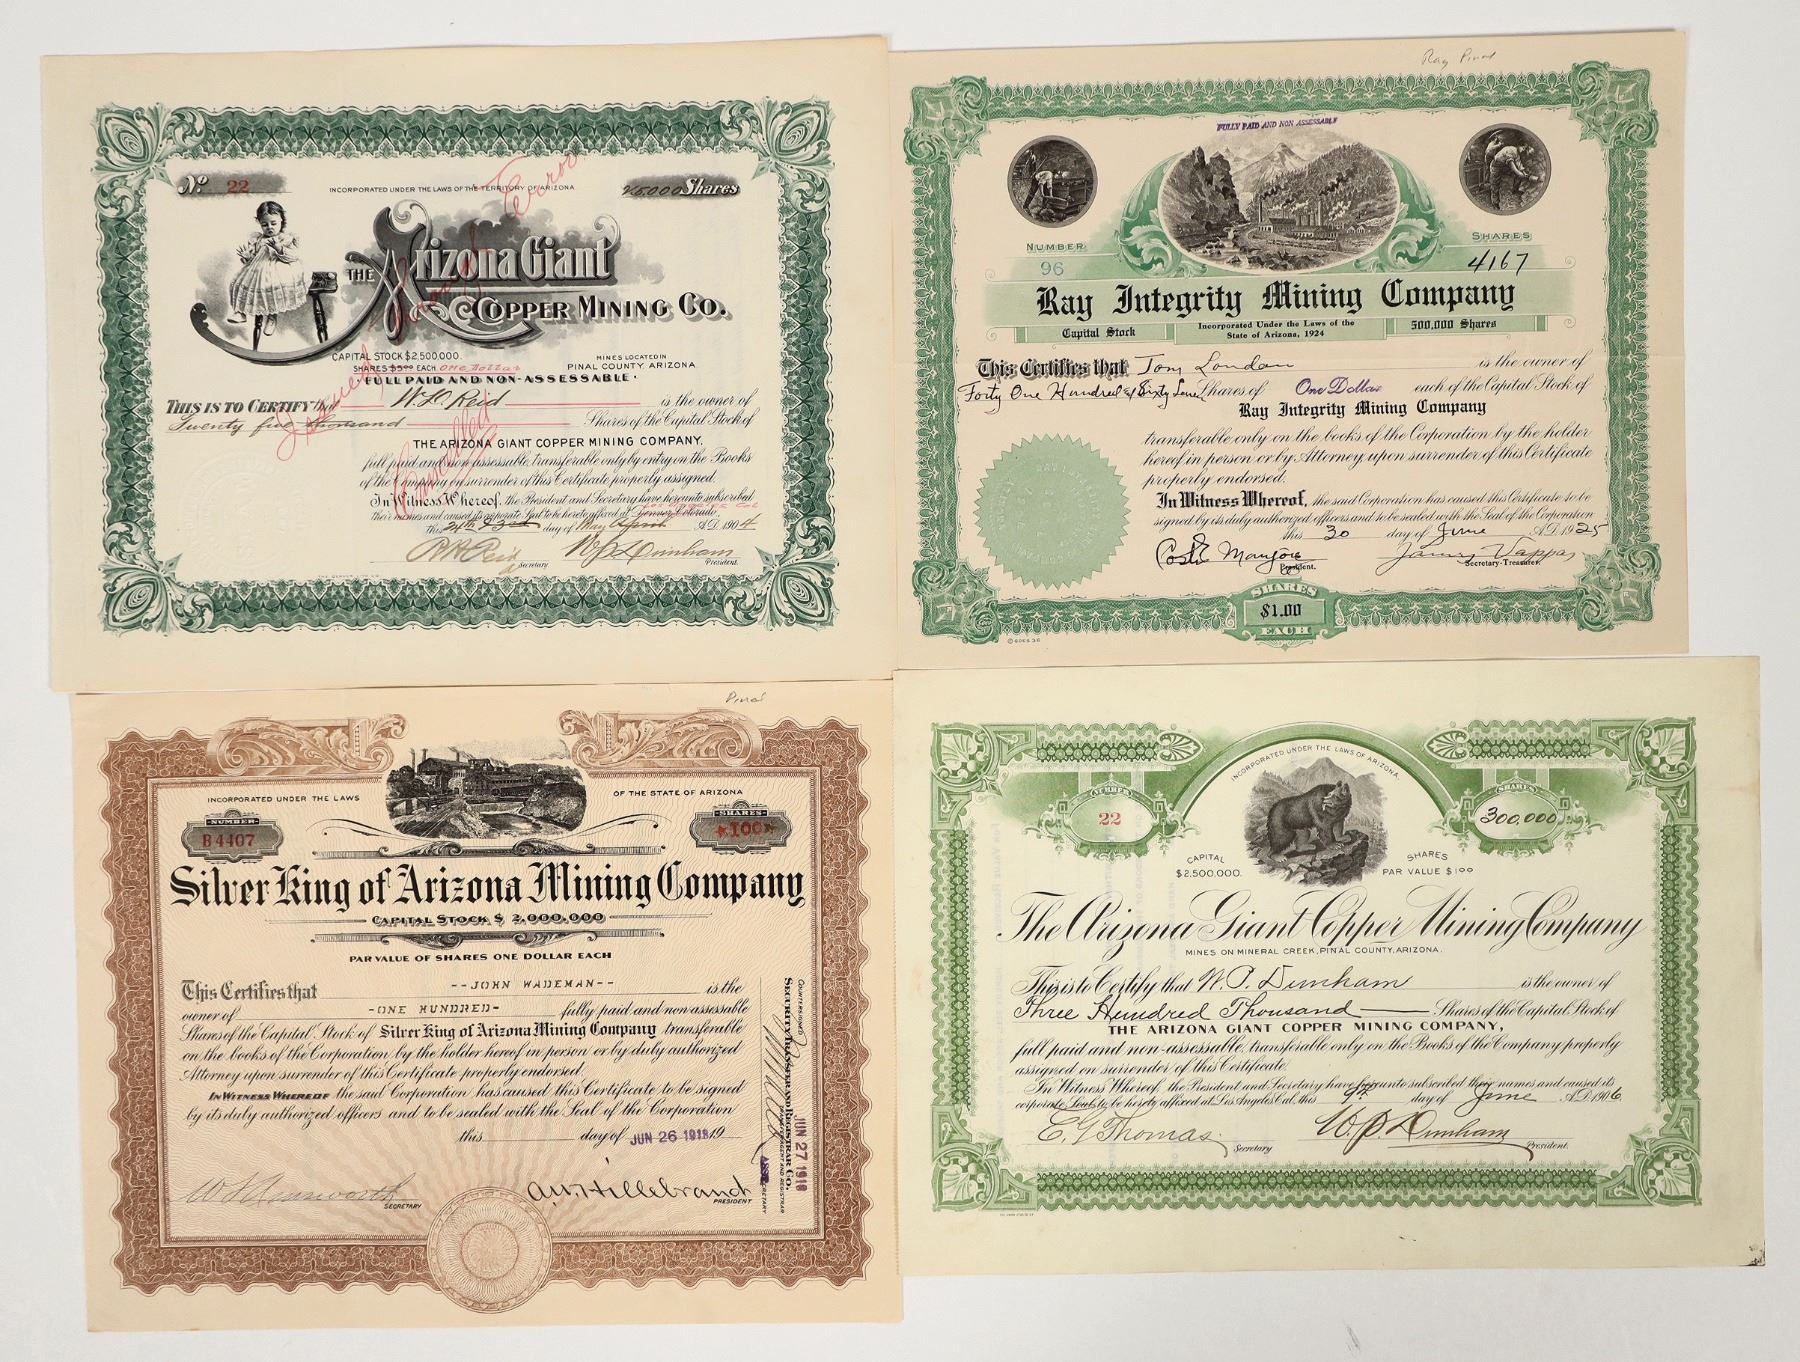 No. 22
INCORPORATED UNDER THE LAWS OF THE TERRITORY OF ARIZONA
25000 Shares
THE Arizona Giant
COPPER MINING CO.
CAPITAL STOCK $2,500,000.
SHARES $5.00 EACH One Dollar
MINES LOCATED IN
PINAL COUNTY, ARIZONA.
FULL PAID AND NON-ASSESSABLE.
Issued through Error
Cancelled
THIS IS TO CERTIFY that W. H. Reid is the owner of
Twenty five thousand Shares of the Capital Stock of
THE ARIZONA GIANT COPPER MINING COMPANY,
full paid and non-assessable, transferable only by entry on the Books
of the Company on surrender of this Certificate properly assigned.
In Witness Whereof, the President and Secretary have hereunto subscribed
Los Angeles Cal
their names and caused its corporate Seal to be hereto affixed at Denver, Colorado,
this 24th 23rd day of May April A.D. 1904
W. P. Dunham
Secretary President.
Ray Pinal
FULLY PAID AND NON ASSESSABLE
NUMBER
96
SHARES
4167
Ray Integrity Mining Company
Capital Stock
Incorporated Under the Laws of the
State of Arizona, 1924
500,000 Shares
This Certifies that Tom London is the owner of
Forty One Hundred & Sixty Seven Shares of One Dollar each of the Capital Stock of
Ray Integrity Mining Company
transferable only on the books of the Corporation by the holder
hereof in person or by Attorney, upon surrender of this Certificate
properly endorsed.
In Witness Whereof, the said Corporation has caused this Certificate to be
signed by its duly authorized officers and to be sealed with the Seal of the Corporation
this 30 day of June A.D. 1925
President.
Secretary-Treasurer
SHARES
$1.00
EACH
© GOES 36
Pinal
INCORPORATED UNDER THE LAWS
OF THE STATE OF ARIZONA
NUMBER
B4407
SHARES
*100*
Silver King of Arizona Mining Company
CAPITAL STOCK $ 2,000,000
PAR VALUE OF SHARES ONE DOLLAR EACH
This Certifies that --JOHN WADEMAN-- is the
owner of -ONE HUNDRED- fully paid and non-assessable
Shares of the Capital Stock of Silver King of Arizona Mining Company transferable
on the books of the Corporation by the holder hereof in person or by duly authorized
Attorney upon surrender of this Certificate properly endorsed.
IN WITNESS WHEREOF the said Corporation has caused this Certificate to be signed
by its duly authorized officers and to be sealed with the Seal of the Corporation
this day of JUN 26 1918 19
A.W. Hillebrand
SECRETARY
PRESIDENT
COUNTERSIGNED
SECURITY TRANSFER AND REGISTRAR CO.
TRANSFER AGENT AND REGISTRAR
JUN 27 1918
ASST SECRETARY
INCORPORATED UNDER THE LAWS OF ARIZONA.
NUMBER
22
SHARES
300,000
CAPITAL
$2,500,000.
SHARES
PAR VALUE $1.00
The Arizona Giant Copper Mining Company
MINES ON MINERAL CREEK, PINAL COUNTY, ARIZONA.
This is to Certify that W. P. Dunham is the owner of
Three Hundred Thousand Shares of the Capital Stock of
THE ARIZONA GIANT COPPER MINING COMPANY,
full paid and non-assessable, transferable only on the Books of the Company properly
assigned on surrender of this Certificate.
In Witness Whereof, the President and Secretary have hereunto subscribed their names and caused its
corporate Seal to be hereto affixed at Los Angeles Cal. this 9th day of June A.D. 1906.
E. G. Thomas
Secretary
W. P. Dunham
President.